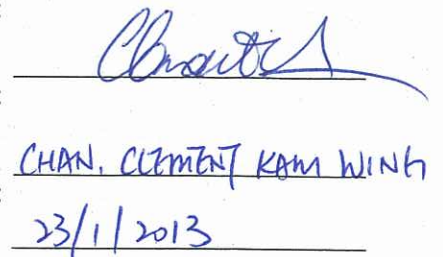 CHAN, CLEMENT KAM WING
23/1/2013